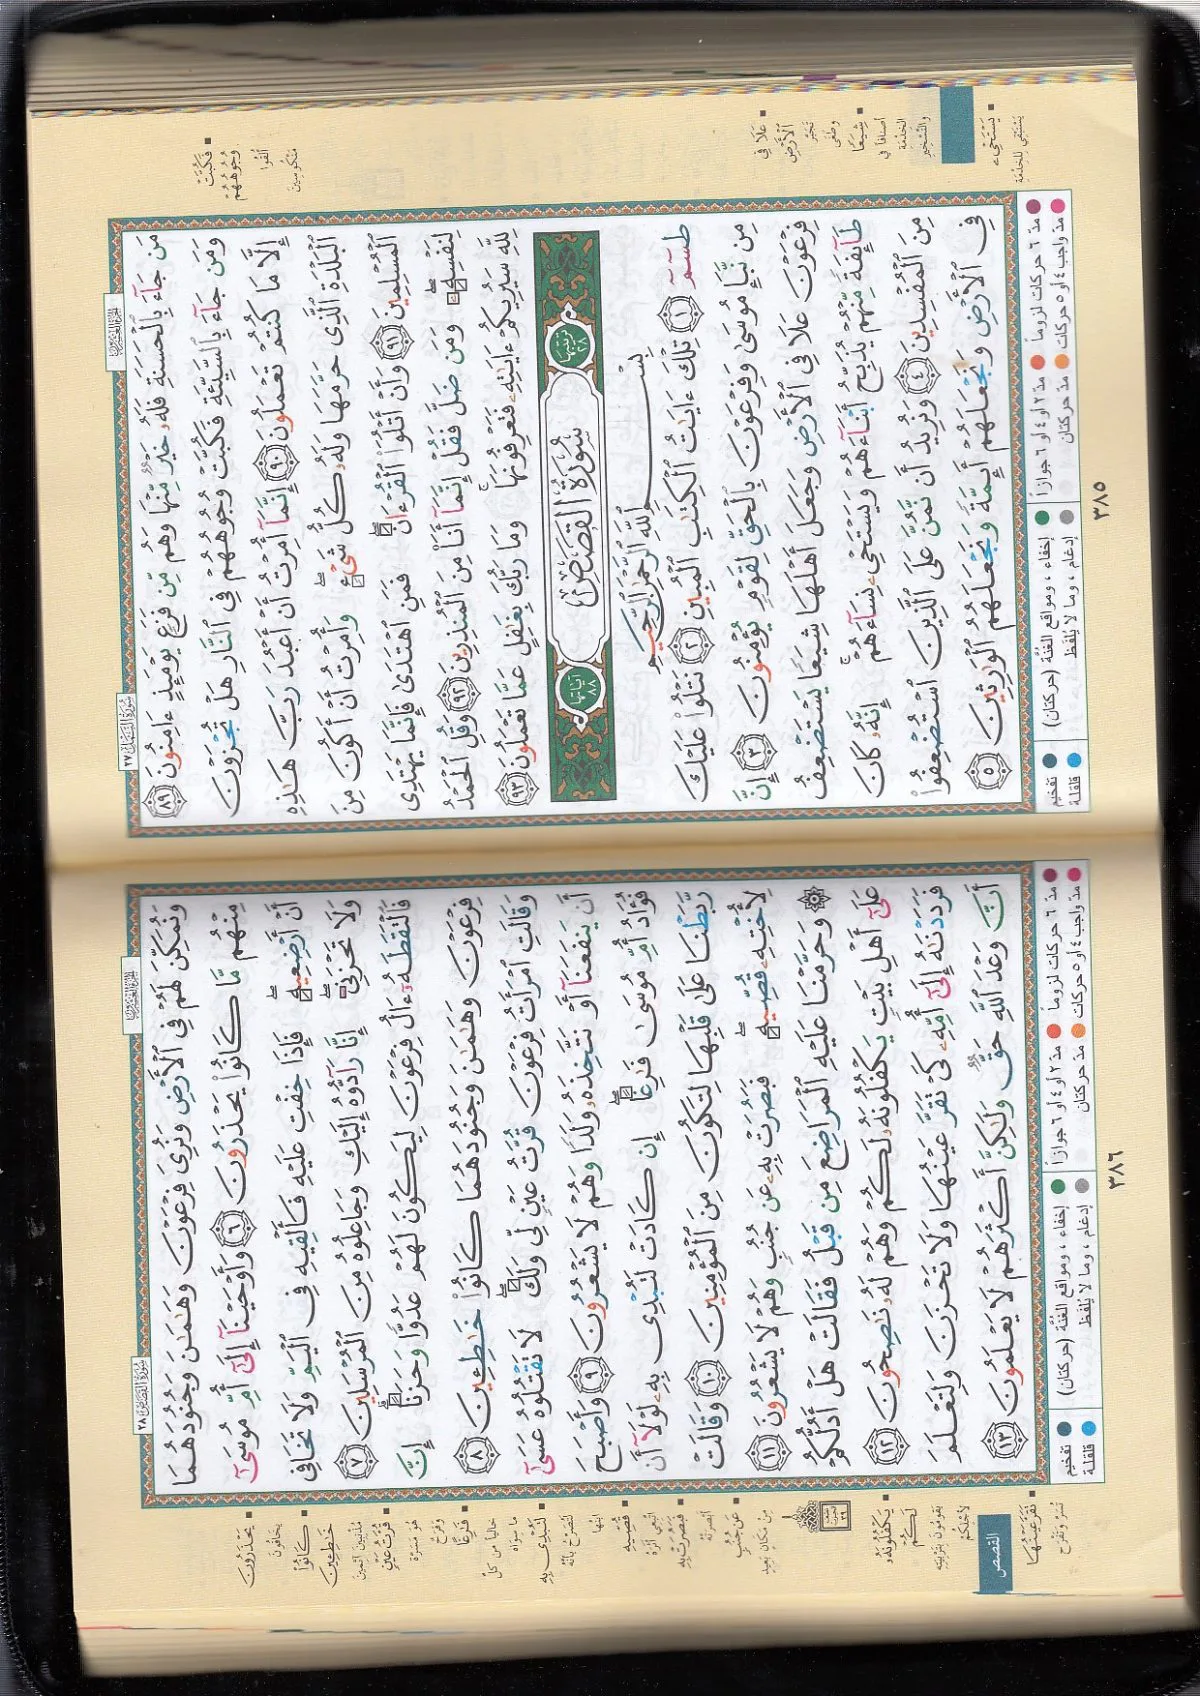 سُورَةُ النَّمْلِ ٢٧
مَن جَآءَ بِٱلْحَسَنَةِ فَلَهُۥ خَيْرٌ مِّنْهَا وَهُم مِّن فَزَعٍ يَوْمَئِذٍ ءَامِنُونَ ٨٩
وَمَن جَآءَ بِٱلسَّيِّئَةِ فَكُبَّتْ وُجُوهُهُمْ فِى ٱلنَّارِ هَلْ تُجْزَوْنَ
إِلَّا مَا كُنتُمْ تَعْمَلُونَ ٩٠ إِنَّمَآ أُمِرْتُ أَنْ أَعْبُدَ رَبَّ هَٰذِهِ
ٱلْبَلْدَةِ ٱلَّذِى حَرَّمَهَا وَلَهُۥ كُلُّ شَىْءٍ ۖ وَأُمِرْتُ أَنْ أَكُونَ مِنَ
ٱلْمُسْلِمِينَ ٩١ وَأَنْ أَتْلُوَا۟ ٱلْقُرْءَانَ ۖ فَمَنِ ٱهْتَدَىٰ فَإِنَّمَا يَهْتَدِى
لِنَفْسِهِۦ ۖ وَمَن ضَلَّ فَقُلْ إِنَّمَآ أَنَا۠ مِنَ ٱلْمُنذِرِينَ ٩٢ وَقُلِ ٱلْحَمْدُ
لِلَّهِ سَيُرِيكُمْ ءَايَٰتِهِۦ فَتَعْرِفُونَهَا ۚ وَمَا رَبُّكَ بِغَٰفِلٍ عَمَّا تَعْمَلُونَ ٩٣
ترتيبها ٢٨
سُورَةُ القَصَصِ
آياتها ٨٨
بِسْمِ ٱللَّهِ ٱلرَّحْمَٰنِ ٱلرَّحِيمِ
طسٓمٓ ١ تِلْكَ ءَايَٰتُ ٱلْكِتَٰبِ ٱلْمُبِينِ ٢ نَتْلُوا۟ عَلَيْكَ
مِن نَّبَإِ مُوسَىٰ وَفِرْعَوْنَ بِٱلْحَقِّ لِقَوْمٍ يُؤْمِنُونَ ٣ إِنَّ
فِرْعَوْنَ عَلَا فِى ٱلْأَرْضِ وَجَعَلَ أَهْلَهَا شِيَعًا يَسْتَضْعِفُ
طَآئِفَةً مِّنْهُمْ يُذَبِّحُ أَبْنَآءَهُمْ وَيَسْتَحْىِۦ نِسَآءَهُمْ ۚ إِنَّهُۥ كَانَ
مِنَ ٱلْمُفْسِدِينَ ٤ وَنُرِيدُ أَن نَّمُنَّ عَلَى ٱلَّذِينَ ٱسْتُضْعِفُوا۟
فِى ٱلْأَرْضِ وَنَجْعَلَهُمْ أَئِمَّةً وَنَجْعَلَهُمُ ٱلْوَٰرِثِينَ ٥
مدّ ٦ حركات لزوماً مدّ ٢ أو ٤ أو ٦ جوازاً إخفاء ، ومواقع الغُنَّة (حركتان) تفخيم
مدّ واجب ٤ أو ٥ حركات مدّ حركتان إدغام ، وما لا يُلفَظ قلقلة
٣٨٥
فَكُبَّتْ وُجُوهُهُمْ
أُلقُوا مَنْكُوسِينَ
عَلَا فِي الْأَرْضِ
تَجَبَّرَ وطَغَى
شِيَعًا
أصنافًا في الخِدمَة والتَّسْخِير
يَسْتَحْيِي
يَسْتَبْقِي لِلخِدْمَةِ
سُورَةُ القَصَصِ ٢٨
وَنُمَكِّنَ لَهُمْ فِى ٱلْأَرْضِ وَنُرِىَ فِرْعَوْنَ وَهَٰمَٰنَ وَجُنُودَهُمَا
مِنْهُم مَّا كَانُوا۟ يَحْذَرُونَ ٦ وَأَوْحَيْنَآ إِلَىٰٓ أُمِّ مُوسَىٰٓ
أَنْ أَرْضِعِيهِ ۖ فَإِذَا خِفْتِ عَلَيْهِ فَأَلْقِيهِ فِى ٱلْيَمِّ وَلَا تَخَافِى
وَلَا تَحْزَنِىٓ ۖ إِنَّا رَآدُّوهُ إِلَيْكِ وَجَاعِلُوهُ مِنَ ٱلْمُرْسَلِينَ ٧
فَٱلْتَقَطَهُۥٓ ءَالُ فِرْعَوْنَ لِيَكُونَ لَهُمْ عَدُوًّا وَحَزَنًا ۗ إِنَّ
فِرْعَوْنَ وَهَٰمَٰنَ وَجُنُودَهُمَا كَانُوا۟ خَٰطِـِٔينَ ٨
وَقَالَتِ ٱمْرَأَتُ فِرْعَوْنَ قُرَّتُ عَيْنٍ لِّى وَلَكَ ۖ لَا تَقْتُلُوهُ عَسَىٰٓ
أَن يَنفَعَنَآ أَوْ نَتَّخِذَهُۥ وَلَدًا وَهُمْ لَا يَشْعُرُونَ ٩ وَأَصْبَحَ
فُؤَادُ أُمِّ مُوسَىٰ فَٰرِغًا ۖ إِن كَادَتْ لَتُبْدِى بِهِۦ لَوْلَآ أَن
رَّبَطْنَا عَلَىٰ قَلْبِهَا لِتَكُونَ مِنَ ٱلْمُؤْمِنِينَ ١٠ وَقَالَتْ
لِأُخْتِهِۦ قُصِّيهِ ۖ فَبَصُرَتْ بِهِۦ عَن جُنُبٍ وَهُمْ لَا يَشْعُرُونَ ١١
۞ وَحَرَّمْنَا عَلَيْهِ ٱلْمَرَاضِعَ مِن قَبْلُ فَقَالَتْ هَلْ أَدُلُّكُمْ
عَلَىٰٓ أَهْلِ بَيْتٍ يَكْفُلُونَهُۥ لَكُمْ وَهُمْ لَهُۥ نَٰصِحُونَ ١٢
فَرَدَدْنَٰهُ إِلَىٰٓ أُمِّهِۦ كَىْ تَقَرَّ عَيْنُهَا وَلَا تَحْزَنَ وَلِتَعْلَمَ
أَنَّ وَعْدَ ٱللَّهِ حَقٌّ وَلَٰكِنَّ أَكْثَرَهُمْ لَا يَعْلَمُونَ ١٣
مدّ ٦ حركات لزوماً مدّ ٢ أو ٤ أو ٦ جوازاً إخفاء ، ومواقع الغُنَّة (حركتان) تفخيم
مدّ واجب ٤ أو ٥ حركات مدّ حركتان إدغام ، وما لا يُلفَظ قلقلة
٣٨٦
يَحْذَرُونَ
يَخَافُونَ
كَانُوا خَاطِئِينَ
مُذْنِبِينَ آثِمِينَ
قُرَّتُ عَيْنٍ
هُوَ مَسَرَّة وَفَرَحٌ
فَارِغًا
خَالِيًا مِن كُلِّ ما سِوَاه
لَتُبْدِي بِهِ
لَتُصَرِّحُ بأنَّهُ ابنُها
قُصِّيهِ
اتَّبِعِي أثَرَهُ
فَبَصُرَتْ بِهِ
أبْصَرَتْهُ
عَنْ جُنُبٍ
مِنْ مَكانٍ بَعِيدٍ
يَكْفُلُونَهُ لَكُمْ
يَقومُونَ بِتَرْبِيَتِهِ لأجْلِكُمْ
القصص
تَقَرَّ عَيْنُهَا
تُسَرَّ وتَفْرَحَ